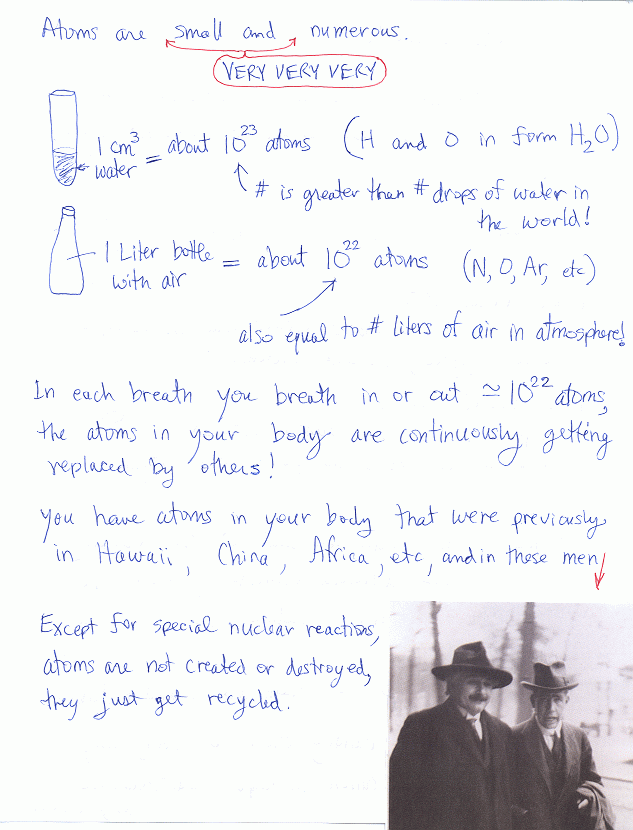 Atoms are small and numerous.
VERY VERY VERY
1 cm³ water = about 10²³ atoms (H and O in form H₂O)
# is greater than # drops of water in
the world!
1 Liter bottle with air = about 10²² atoms (N, O, Ar, etc)
also equal to # liters of air in atmosphere!
In each breath you breath in or out ≃ 10²² atoms,
the atoms in your body are continuously getting
replaced by others!
You have atoms in your body that were previously
in Hawaii, China, Africa, etc, and in these men
Except for special nuclear reactions,
atoms are not created or destroyed,
they just get recycled.